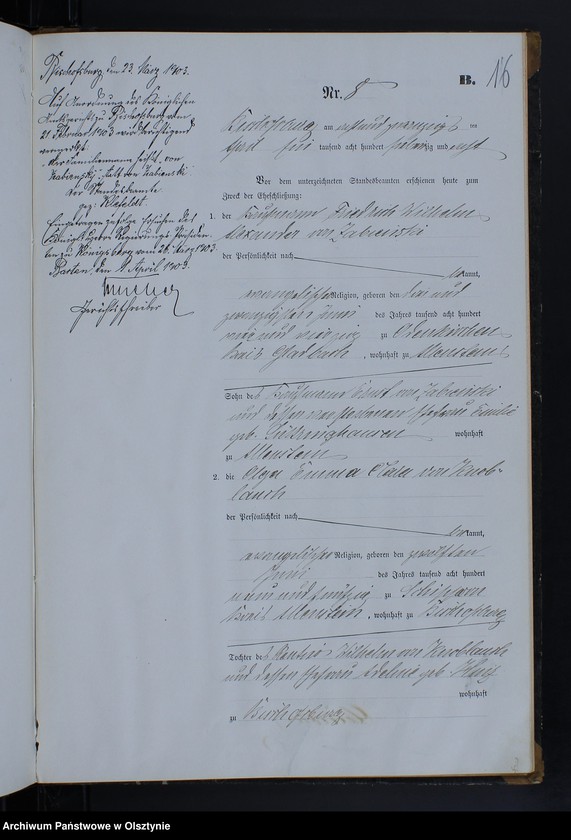 Bischofsburg, den 23. März 1903.
Auf Anordnung des Königlichen
Amtsgerichts zu Bischofsburg vom
21 Februar 1903 wird berichtigend
vermerkt:
der Familienname heißt, von
statt von
Der Standesbeamte
gez: Klefeldt.
Eingetragen zufolge des
Königsberg vom 26. März 1903.
Barten, den 9. April 1903.
Gerichtsschreiber
B. 16
Nr. 8
Bischofsburg am acht und zwanzigsten
Juni tausend acht hundert siebenzig und acht
Vor dem unterzeichneten Standesbeamten erschienen heute zum
Zweck der Eheschließung:
1. der Kaufmann Friedrich Wilhelm
Alexander von
der Persönlichkeit nach
kannt,
evangelischer Religion, geboren den drei und
zwanzigsten Juni des Jahres tausend acht hundert
und vierzig zu Odenkirchen
Kreis Gladbach, wohnhaft zu Allenstein
Sohn des Kaufmanns Ernst von
und dessen verstorbenen Ehefrau Emilie
geb. wohnhaft
zu Allenstein
2. die Olga Emma Clara von Knob-
lauch
der Persönlichkeit nach
kannt,
evangelischer Religion, geboren den zwölften
Juni des Jahres tausend acht hundert
neun und fünfzig zu
Kreis Allenstein, wohnhaft zu Bischofsburg
Tochter des Rentier Wilhelm von Knoblauch
und dessen Ehefrau geb.
wohnhaft
zu Bischofsburg
Archiwum Państwowe w Olsztynie